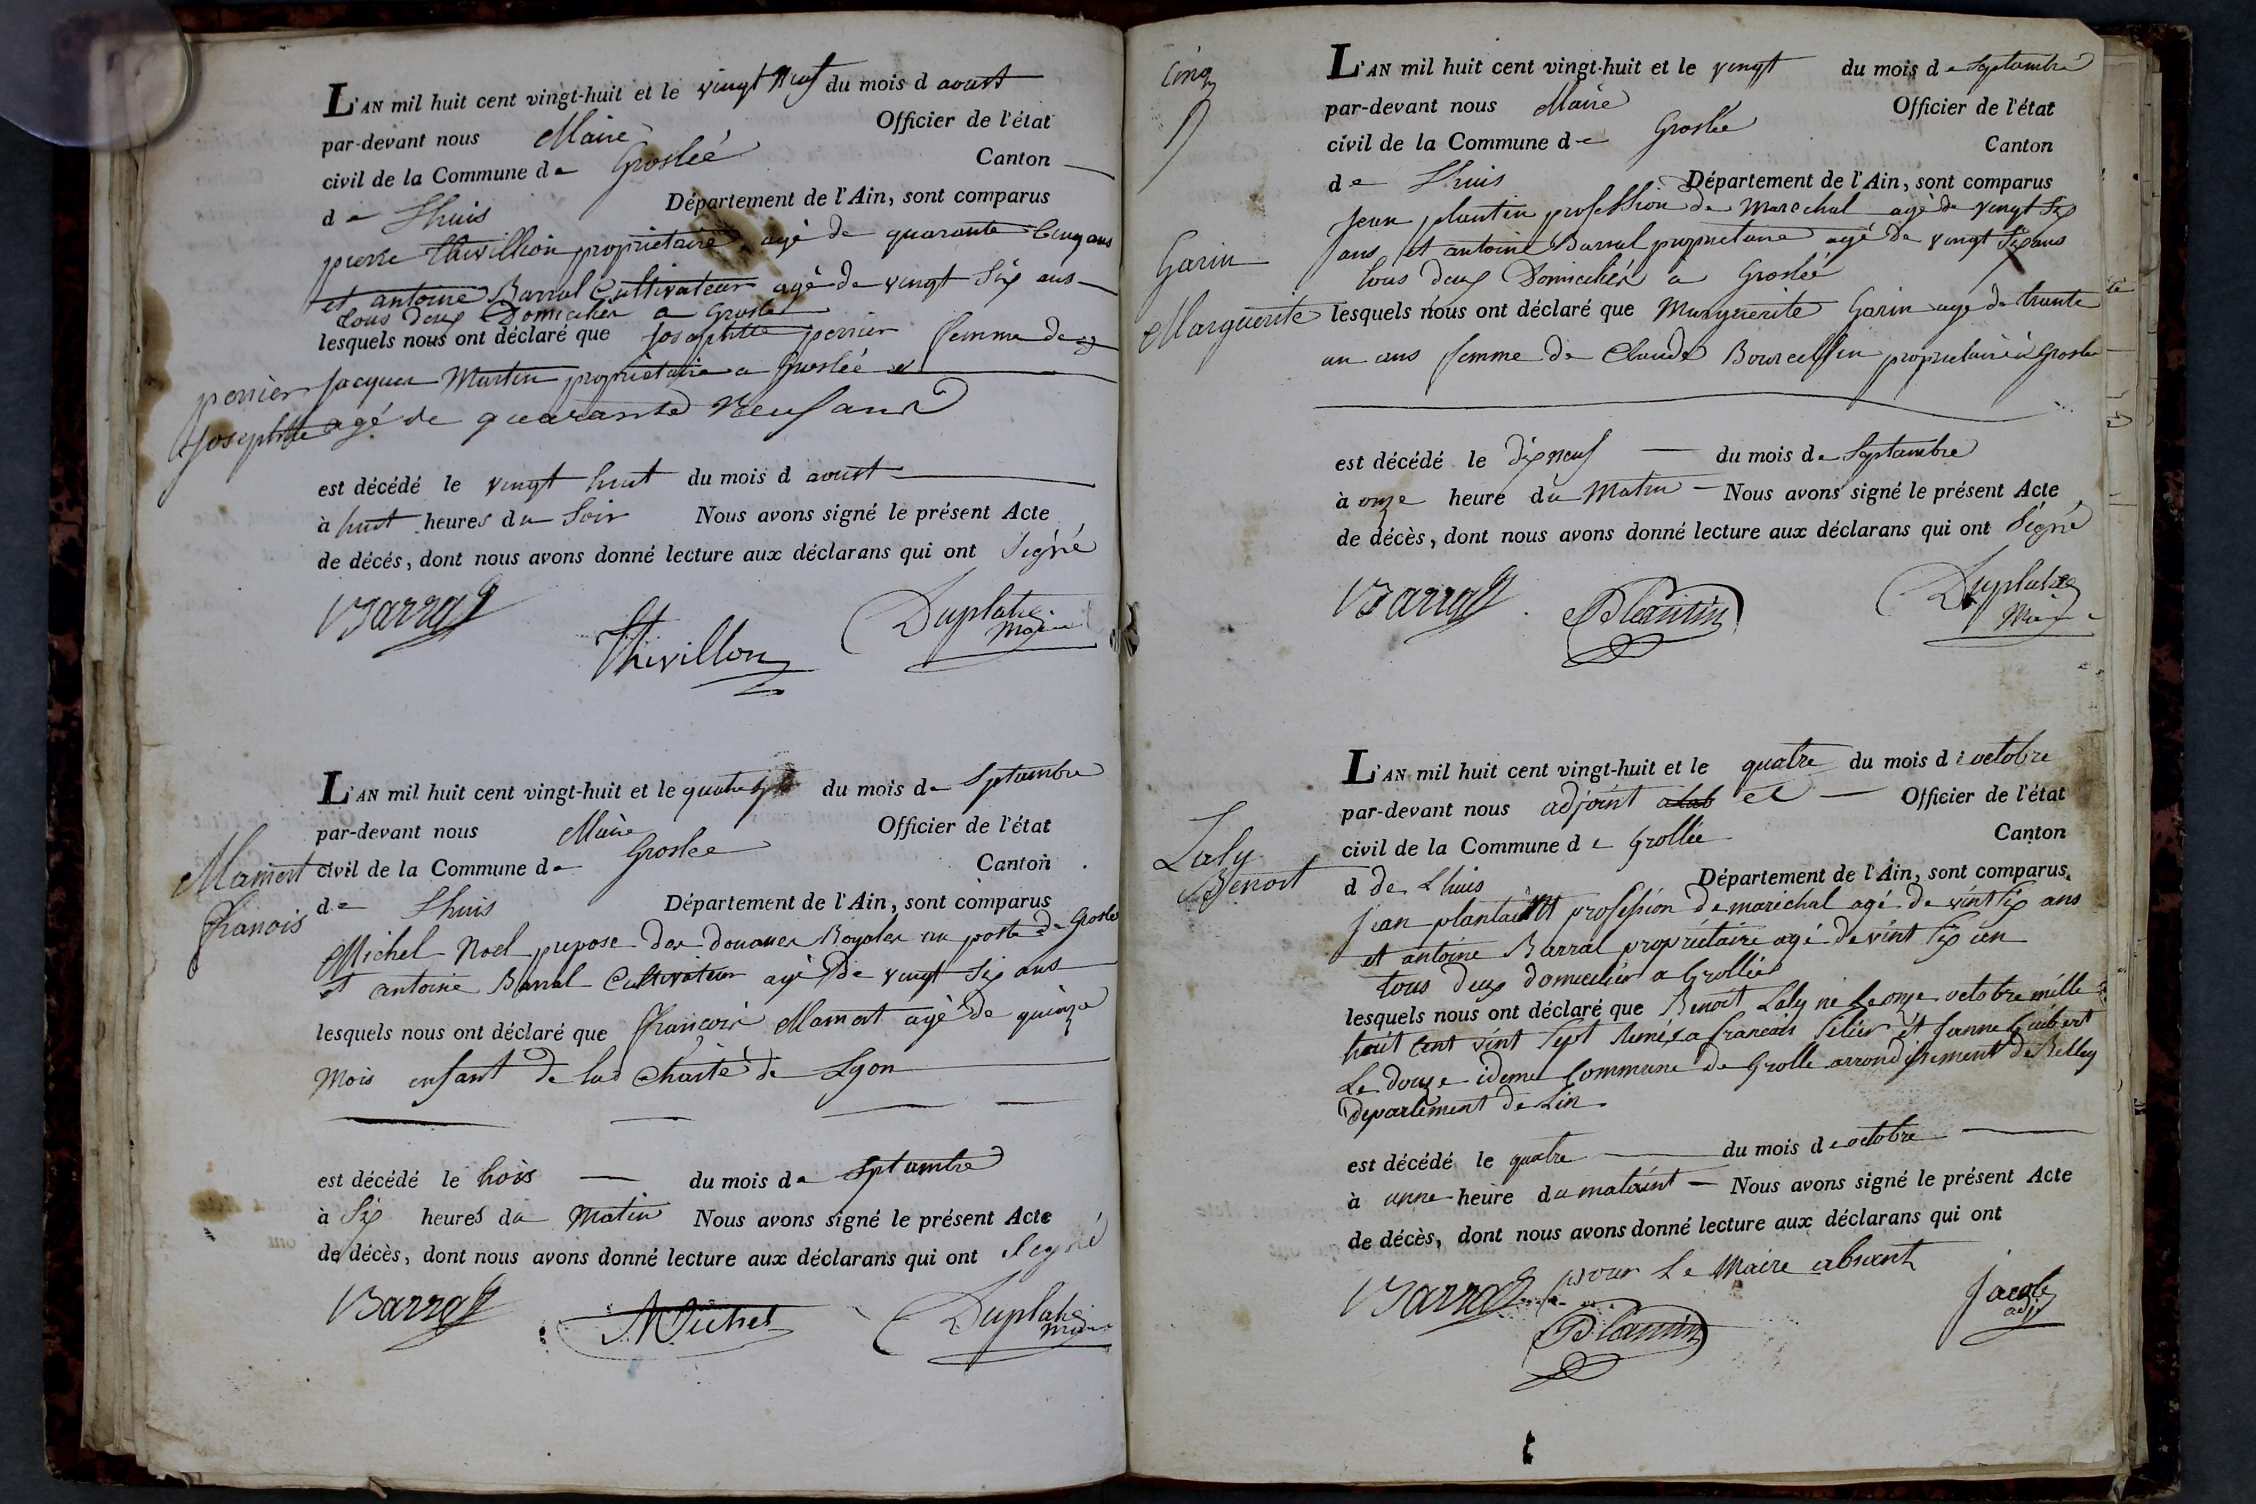 L'AN mil huit cent vingt-huit et le vingt Neuf du mois d aoust
par-devant nous Maire Officier de l'état
civil de la Commune de Groslée Canton
de Lhuis Département de l'Ain, sont comparus
pierre thivillion proprietaire agé de quarante Cinq ans
et antoine Barral Cultivateur agé de vingt Six ans
tous deux Domiciliés a Groslé
lesquels nous ont déclaré que Josephtte perrier femme de
perrier
Josephtte
Jacques Martin propriétaire a Groslée
agé de quarante Neuf ans
est décédé le vingt huit du mois d aoust
à huit heures du Soir Nous avons signé le présent Acte
de décés, dont nous avons donné lecture aux déclarans qui ont Signé
Barral
Thivillon
Duplatre
Maire
L'AN mil huit cent vingt-huit et le quatre du mois de Sptambre
par-devant nous Maire Officier de l'état
Mamert
François
civil de la Commune de Groslee Canton
de Lhuis Département de l'Ain, sont comparus
Michel Noel prepose des douanes Royales au poste de Groslee
et antoine Barral Cultivateur agé de vingt Six ans
lesquels nous ont déclaré que François Mamert agé de quinze
Mois enfant de la Charité de Lyon
est décédé le trois du mois de Sptambre
à Six heures du Matin Nous avons signé le présent Acte
de décès, dont nous avons donné lecture aux déclarans qui ont Signé
Barral
NMichel
Duplatre
Maire
Cinq
L'AN mil huit cent vingt-huit et le vingt du mois de Septambre
par-devant nous Maire Officier de l'état
civil de la Commune de Groslée Canton
de Lhuis Département de l'Ain, sont comparus
Jean plantin profession de Marechal agé de vingt Six
ans et antoine Barral proprietaire agé de vingt Six ans
tous deux Domiciliés a Groslée
Garin
Marguerite
lesquels nous ont déclaré que Marguerite Garin agé de trante
un ans femme de Claude Bourcellin propriétaire a Groslee
est décédé le dix neuf du mois de Septambre
à onze heure du Matin Nous avons signé le présent Acte
de décès, dont nous avons donné lecture aux déclarans qui ont Signé
Barral
Plantin
Duplatre
Maire
L'AN mil huit cent vingt-huit et le quatre du mois de octobre
par-devant nous adjoint et Officier de l'état
civil de la Commune de Grollée Canton
Laly
Benoit
d de Lhuis Département de l'Ain, sont comparus
Jean plantin profession de maréchal agé de vint six ans
et antoine Barral propriétaire agé de vint six an
tous deux domiciliés a Grollée
lesquels nous ont déclaré que Benoit Laly né Le onze octobre mille
huit Cent vint Sept Remés a francois et Janne Gubert
Le douze ideme Commune de Grolle arrondissement de Belley
département de Lin
est décédé le quatre du mois de octobre
à unne heure du Nous avons signé le présent Acte
de décès, dont nous avons donné lecture aux déclarans qui ont
pour Le Maire absent
Barral
Plantin
Jacob
adj